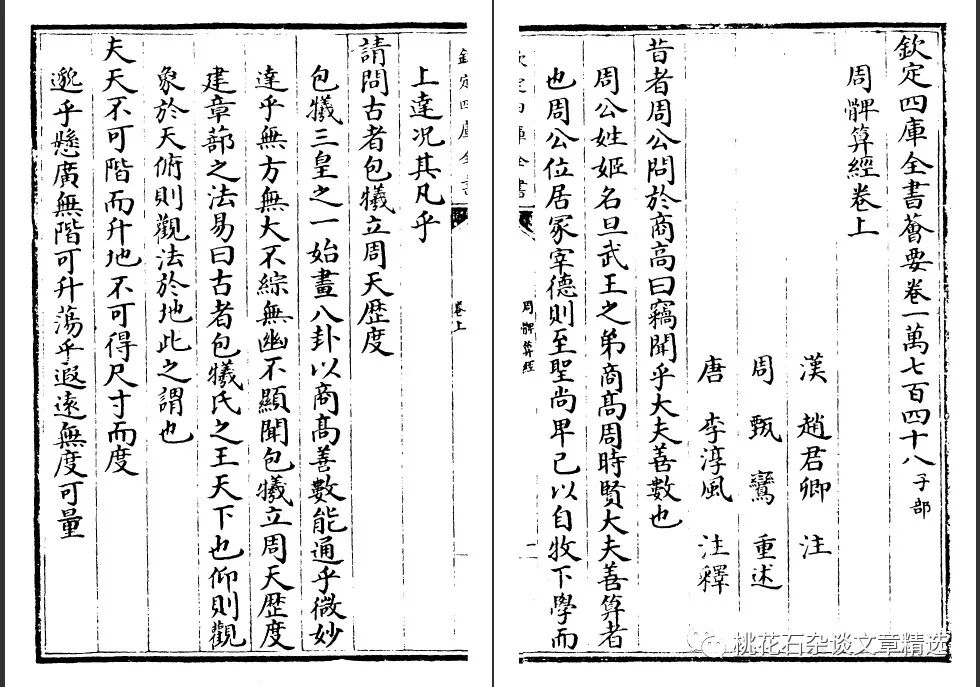 欽定四庫全書薈要卷一萬七百四十八 子部
周髀算經卷上
漢 趙君卿 注
周 甄鸞 重述
唐 李淳風 注釋
昔者周公問於商高曰竊聞乎大夫善數也
周公姓姬名旦武王之弟商高周時賢大夫善算者
也周公位居冢宰德則至聖尚卑己以自牧下學而
欽定四庫全書
周髀算經
卷上
上達况其凡乎
請問古者包犧立周天歷度
包犧三皇之一始畫八卦以商高善數能通乎微妙
達乎無方無大不綜無幽不顯聞包犧立周天歷度
建章蔀之法易曰古者包犧氏之王天下也仰則觀
象於天俯則觀法於地此之謂也
夫天不可階而升地不可得尺寸而度
邈乎懸廣無階可升蕩乎遐遠無度可量
桃花石杂谈文章精选